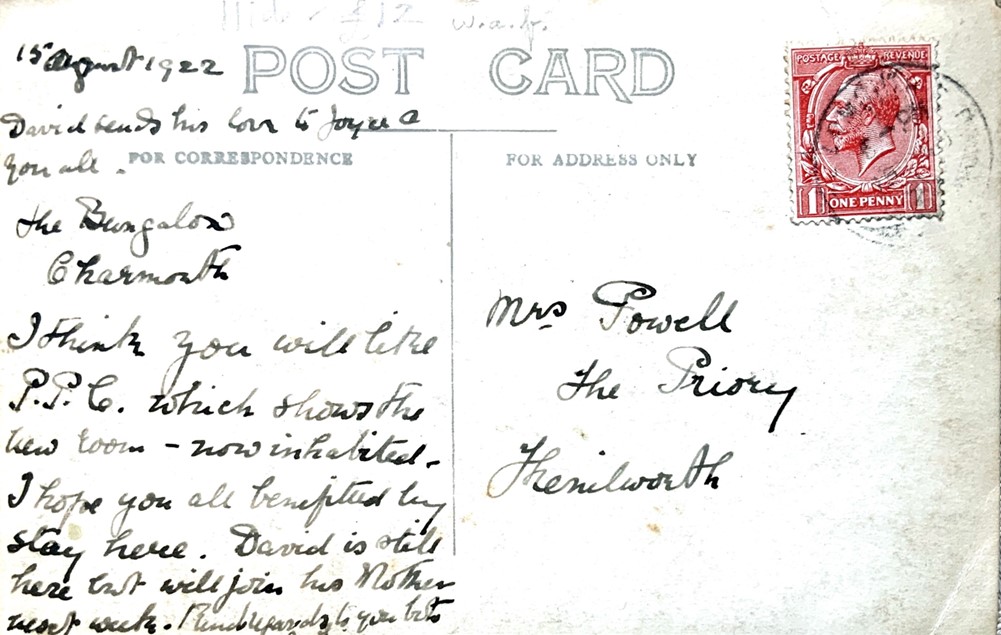 £12 W.a.f.
15 August 1922
POST CARD
David sends his love to Joyce &
you all.
FOR CORRESPONDENCE
FOR ADDRESS ONLY
The Bungalow
Charmouth
I think you will like
P.P.C. which shows the
new room - now inhabited -
I hope you all benefited by
stay here. David is still
here but will join his Mother
next week. Kind regards to you both
POSTAGE REVENUE
1 ONE PENNY 1
Mrs Powell
The Priory
Kenilworth